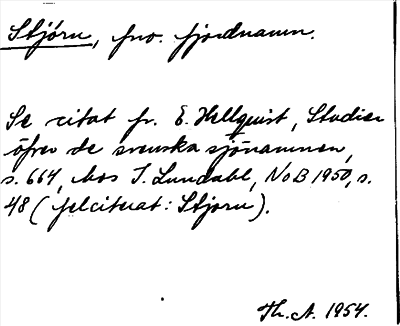 Stjórn, fno. fjordnamn.
Se citat fr. E. Hellquist, Studier
öfver de svenska sjönamnen,
s. 664, hos I. Lundahl, NoB 1950, s.
48 (felciterat: Stjorn).
Th. A. 1954.